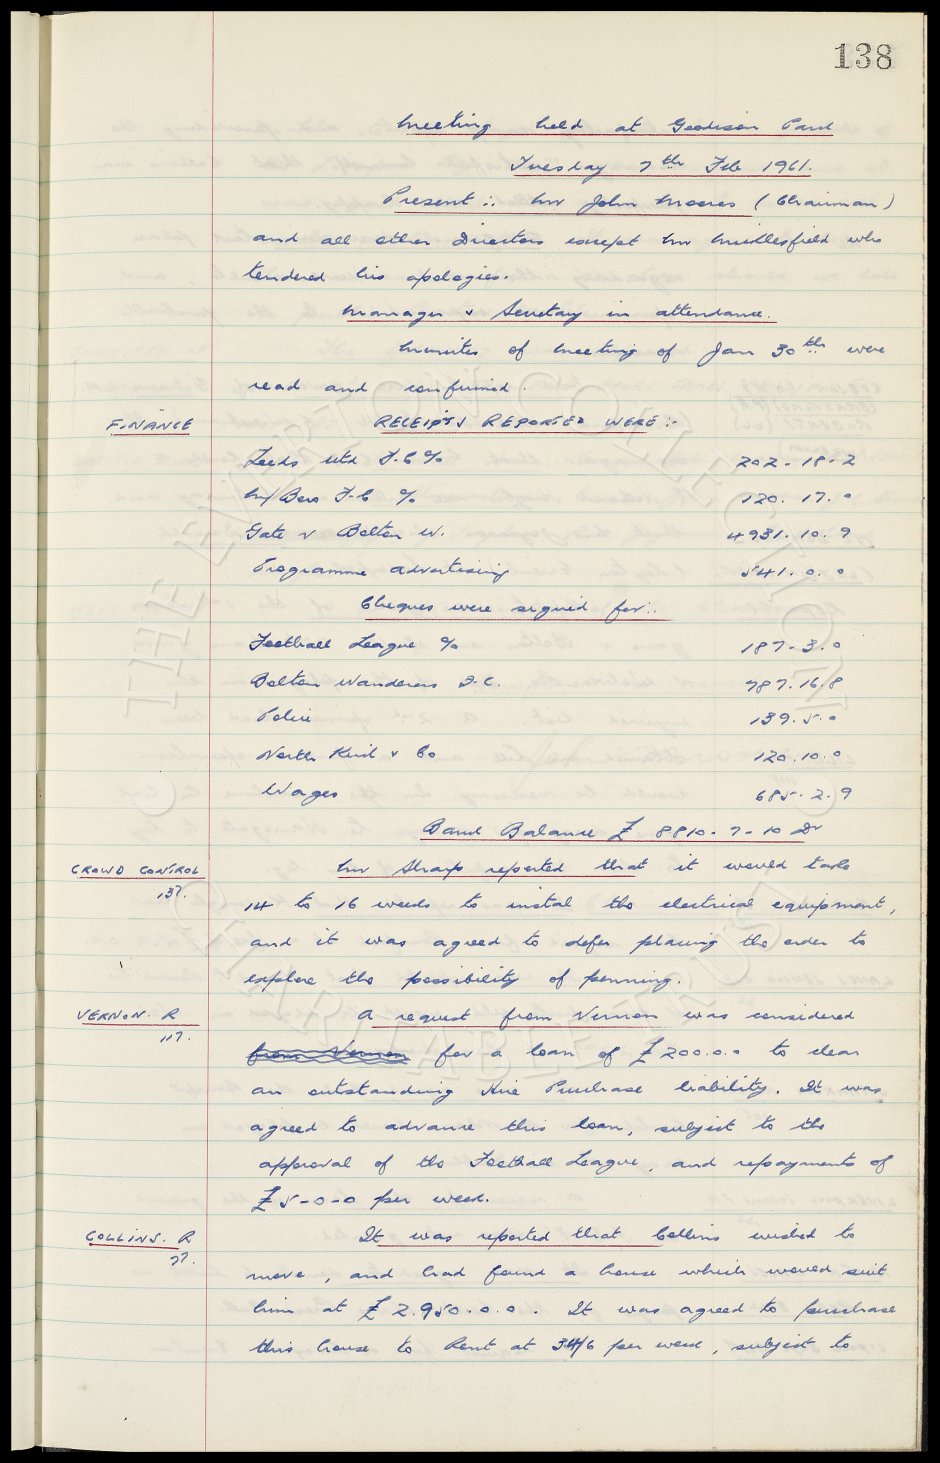 138
Meeting held at Goodison Park
Tuesday 7th Feb 1961.
Present :. Mr John Moores (Chairman)
and all other Directors except Mr Micklesfield who
tendered his apologies.
Manager & Secretary in attendance.
Minutes of Meeting of Jan 30th were
read and confirmed.
FINANCE RECEIPTS REPORTED WERE :-
Leeds Utd F.C % 202-18-2
M/Boro F.C % 120. 17. 0
Gate v Bolton W. 4931. 10. 9
Programme advertising 541. 0. 0
Cheques were signed for :.
Football League % 187-3.0
Bolton Wanderers F.C. 787.16.8
Police 139.5.0
North Kirk & Co 120.10.0
Wages 685.2.9
Bank Balance £ 8810-7-10 Dr
CROWD CONTROL Mr Sharp reported that it would take
137. 14 to 16 weeks to instal the electrical equipment,
and it was agreed to defer placing the order to
explore the possibility of penning.
VERNON. R A request from Vernon was considered
117. from Vernon for a loan of £200.0.0 to clear
an outstanding Hire Purchase liability. It was
agreed to advance this loan, subject to the
approval of the Football League, and repayments of
£5-0-0 per week.
COLLINS. R It was reported that Collins wished to
77. move, and had found a house which would suit
him at £2.950.0.0. It was agreed to purchase
this house to Rent at 34/6 per week, subject to
THE EVERTON COLLECTION
CHARITABLE TRUST